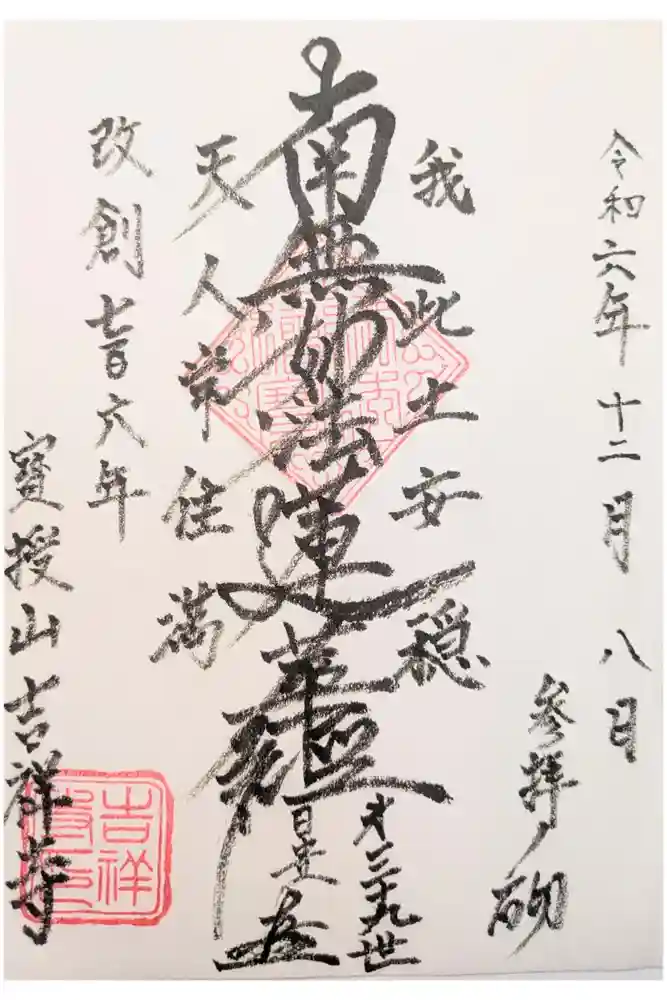 令和六年十二月八日
参拝ノ砌
我此土安穏
南無妙法蓮華経
第三十九世
天人常住満
改創六年
寶授山吉祥寺
吉祥